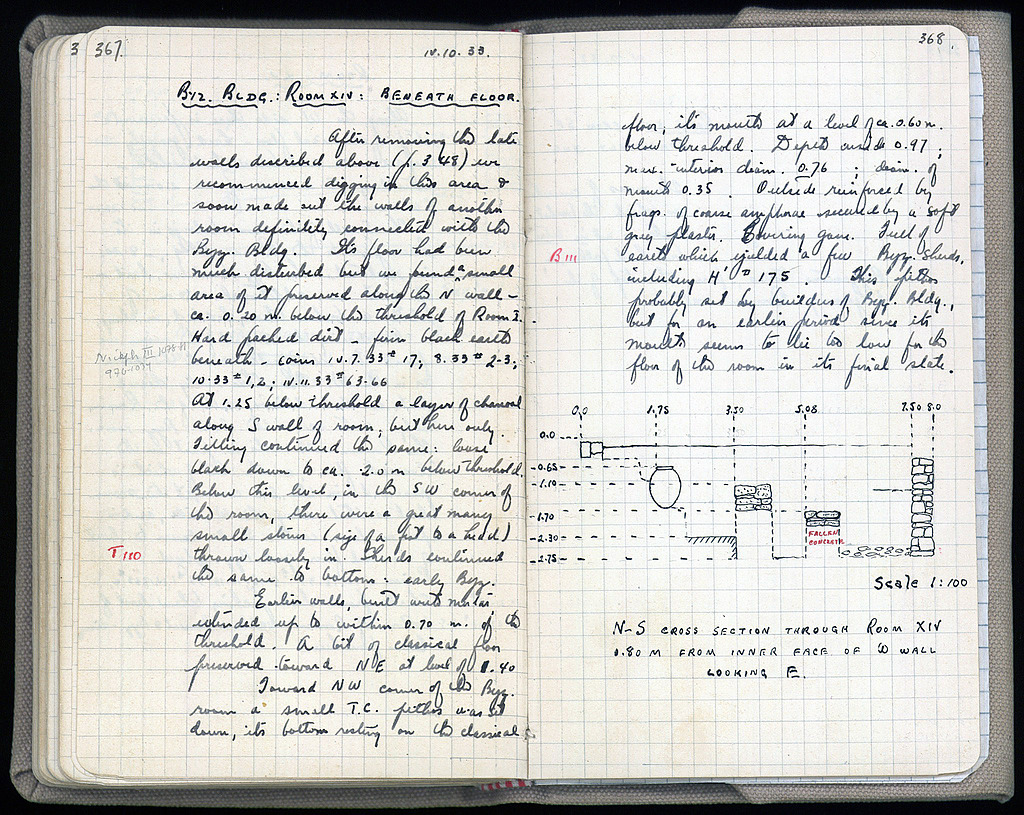 3 367.
IV.10.33.
BYZ. BLDG.: ROOM XIV: BENEATH FLOOR.
After removing the late
walls described above (p. 348) we
recommenced digging in this area &
soon made out the walls of another
room definitely connected with the
Byz. Bldg. Its floor had been
much disturbed but we found a small
area of it preserved along the N wall -
ca. 0.20 m. below the threshold of Room I.
Hard packed dirt - firm black earth
beneath - coins IV.7.33 # 17; 8.33 # 2-3;
10.33 # 1, 2; IV.11.33 # 63-66
Niceph III
At 1.25 below threshold a layer of charcoal
along S wall of room; but here only.
Filling continued the same: loose
black down to ca. 2.0 m below threshold.
Below this level, in the SW corner of
the room, there were a great many
small stones (size of a fist to a head)
T 110
thrown loosely in. Sherds continued
the same to bottom: early Byz.
Earlier walls, built with mortar,
extended up to within 0.70 m. of the
threshold. A bit of classical floor
preserved toward NE at level of 1.40
Toward NW corner of the Byz.
room a small T.C. pithos was set
down, its bottom resting on the classical
368.
floor, its mouth at a level of ca. 0.60 m.
below threshold. Depth inside 0.97;
max. interior diam. 0.76; diam. of
mouth 0.35. Outside reinforced by
frags. of coarse amphorae secured by a soft
grey plaster. Covering gone. Full of
B III
earth which yielded a few Byz. Sherds,
including H' 175. This pithos
probably set by builders of Byz. Bldg.,
but for an earlier period since its
mouth seems to lie too low for the
floor of the room in its final state.
0.0 1.75 3.50 5.08 7.50 8.0
0.0
-0.65
-1.10
-1.70
-2.30
-2.75
FALLEN
CONCRETE
Scale 1:100
N-S CROSS SECTION THROUGH ROOM XIV
0.80 M FROM INNER FACE OF W WALL
LOOKING E.